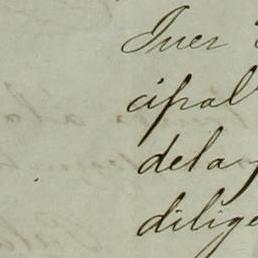 Juez
cipal
dela
dilige